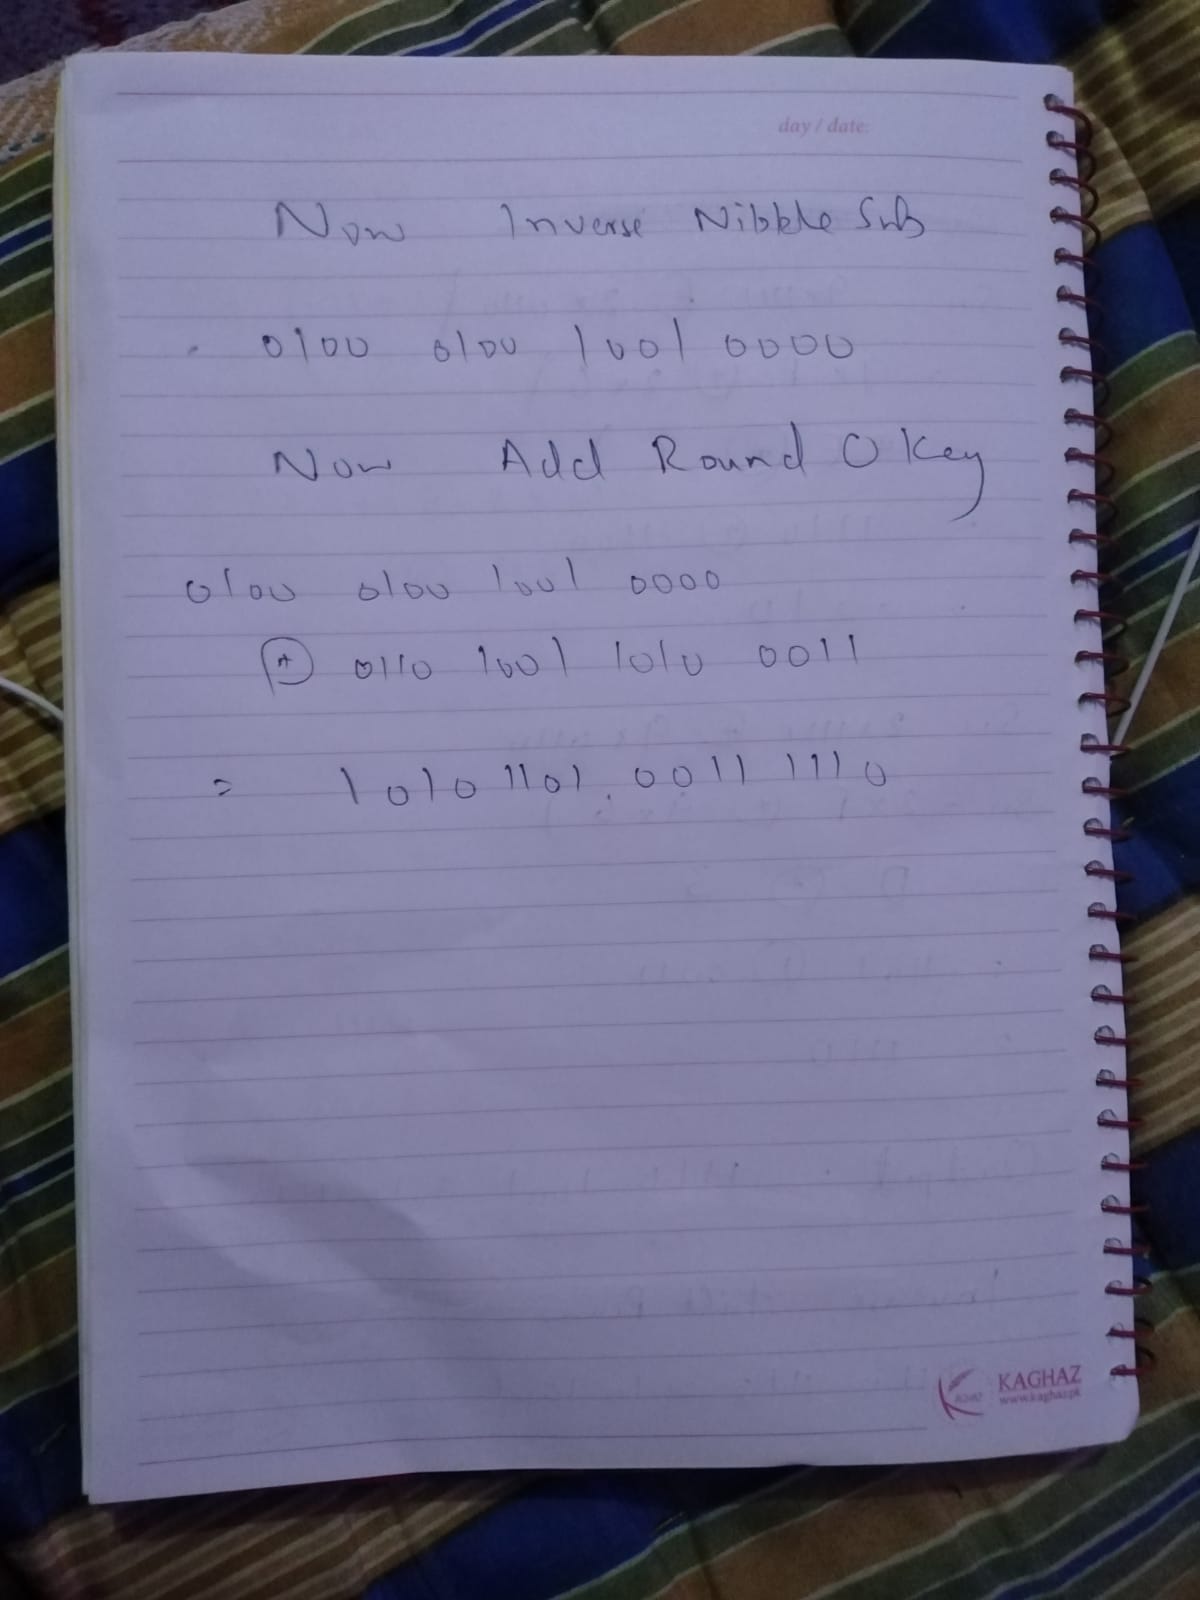 day / date:
Now Inverse Nibble Sub
0100 0100 1001 0000
Now Add Round 0 Key
0100 0100 1001 0000
⊕ 0110 1001 1010 0011
= 1010 1101 0011 1110
KAGHAZ
www.kaghaz.pk